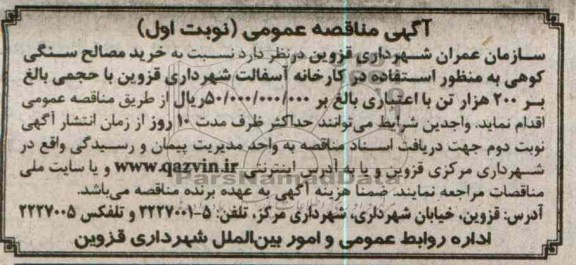 آگهی مناقصه عمومی (نوبت اول)
سازمان عمران شهرداری قزوین درنظر دارد نسبت به خرید مصالح سنگی
کوهی به منظور استفاده در کارخانه آسفالت شهرداری قزوین با حجمی بالغ
بر ۲۰۰ هزار تن با اعتباری بالغ بر ۵۰/۰۰۰/۰۰۰/۰۰۰ریال از طریق مناقصه عمومی
اقدام نماید. واجدین شرایط می‌توانند حداکثر ظرف مدت ۱۰ روز از زمان انتشار آگهی
نوبت دوم جهت دریافت اسناد مناقصه به واحد مدیریت پیمان و رسیدگی واقع در
شهرداری مرکزی قزوین و یا به آدرس اینترنتی www.qazvin.ir و یا سایت ملی
مناقصات مراجعه نمایند. ضمناً هزینه آگهی به عهده برنده مناقصه می‌باشد.
آدرس: قزوین، خیابان شهرداری، شهرداری مرکز، تلفن: ۵-۳۲۲۷۰۰۱ و تلفکس ۲۲۲۷۰۰۵
اداره روابط عمومی و امور بین‌الملل شهرداری قزوین